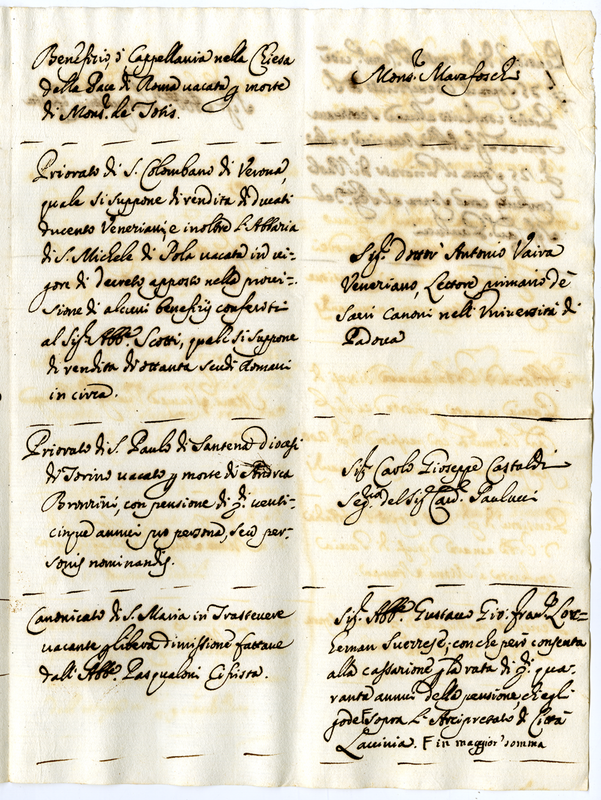 Benefizio, ò Cappellania nella Chiesa
della Pace di Roma vacata p morte
di Mons.r de Totis.
Mons.r Marefoschi
Priorato di S. Colombano di Verona,
quale si suppone di rendita di ducati
ducento Veneziani; e inoltre l'Abbazia
di S. Michele di Pola vacata in vi-
gore di decreto apposto nella provi-
sione di alcuni benefizij conferiti
al Sig.r Abb.e Scotti, quali si suppone
di rendita di ottanta scudi Romani
in circa.
Sig.r Dottor Antonio Vaira
Veneziano, Lettore primario de'
Sacri Canoni nell'Università di
Padova
Priorato di S. Paulo di Santena diocesi
di Torino vacato p morte di Andrea
Bronzini, con pensione di venti-
cinque annui pro persona, seu per-
sonis nominandis.
Sig.r Carlo Gioseppe Castaldi
Seg.rio del Sig.r Card. Paulucci
Canonicato di S. Maria in Trastevere
vacante p libera dimissione fattane
dall'Abb.e Pasqualoni Cifrista.
Sig.r Abb.e Gustavo Gio. Fran.co
Svezzese; con che però consenta
alla cassazione p la rata di qua-
ranta annui della pensione, ch'egli
gode sopra l'Arcipretato di Città
Lavinia. F in maggior somma